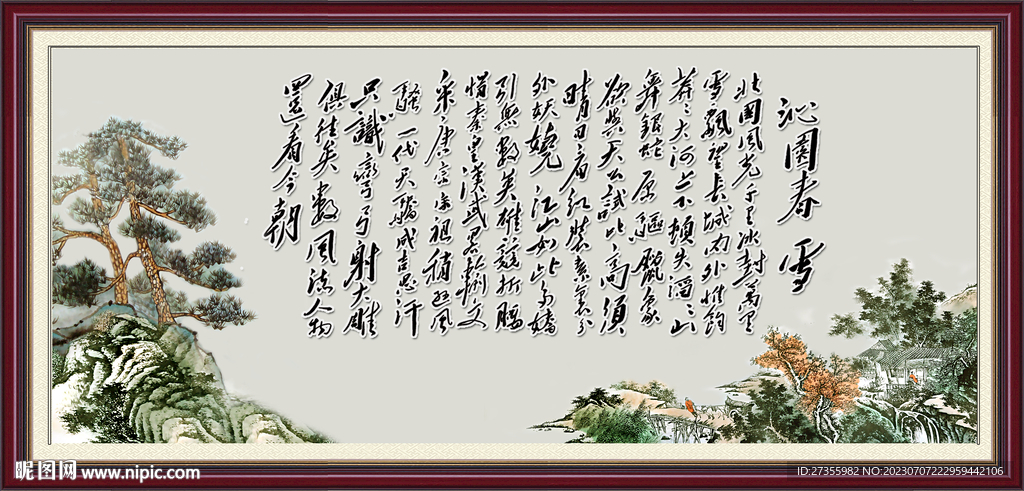 沁園春 雪
北國風光千里冰封萬里
雪飄望長城內外惟餘
莽〻大河上下頓失滔〻山
舞銀蛇原驅臘象
欲與天公試比高須
晴日看紅裝素裹分
外妖嬈江山如此多嬌
引無數英雄競折腰
惜秦皇漢武略輸文
采唐宗宋祖稍遜風
騷一代天驕成吉思汗
只識彎弓射大雕
俱往矣數風流人物
還看今朝
昵图网 www.nipic.com
ID:27355982 NO:20230707222959442106